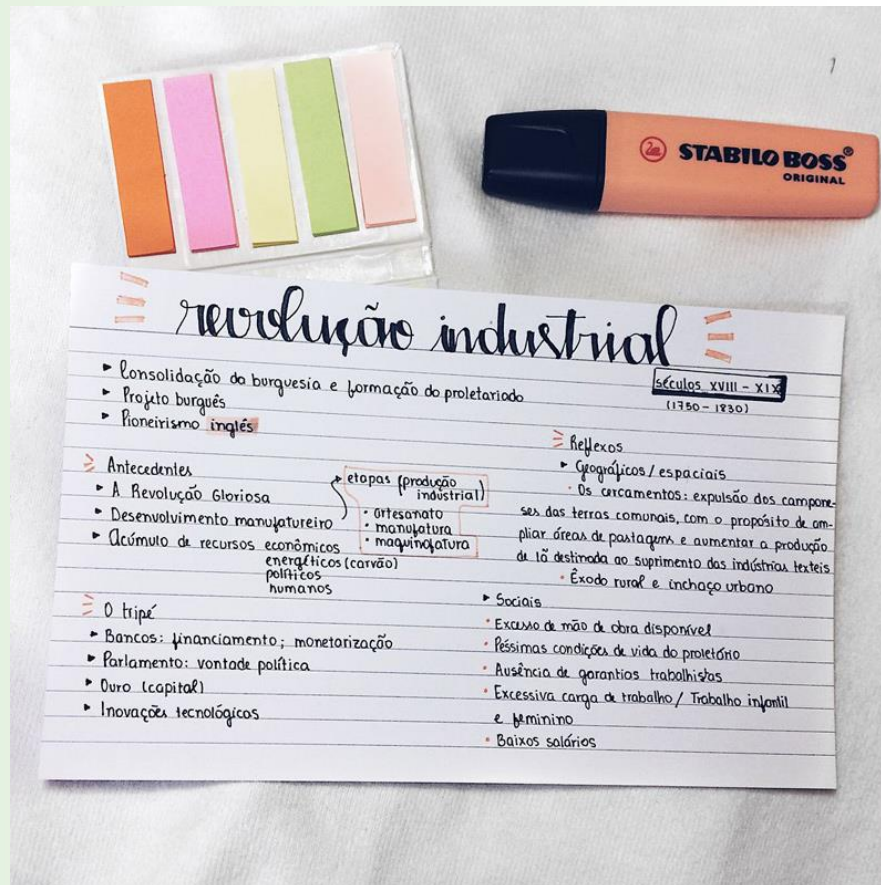 STABILO BOSS®
ORIGINAL
revolução industrial
séculos XVIII - XIX
(1750 - 1830)
▸ Consolidação da burguesia e formação do proletariado
▸ Projeto burguês
▸ Pioneirismo inglês
Antecedentes
▸ A Revolução Gloriosa
▸ Desenvolvimento manufatureiro
▸ Acúmulo de recursos econômicos
energéticos (carvão)
políticos
humanos
etapas (produção
industrial)
• artesanato
• manufatura
• maquinofatura
O tripé
▸ Bancos: financiamento; monetarização
▸ Parlamento: vontade política
▸ Ouro (capital)
▸ Inovações tecnológicas
Reflexos
▸ Geográficos / espaciais
• Os cercamentos: expulsão dos campone-
ses das terras comunais, com o propósito de am-
pliar áreas de pastagens e aumentar a produção
de lã destinada ao suprimento das indústrias texteis
• Êxodo rural e inchaço urbano
▸ Sociais
• Excesso de mão de obra disponível
• Péssimas condições de vida do proletário
• Ausência de garantias trabalhistas
• Excessiva carga de trabalho / Trabalho infantil
e feminino
• Baixos salários